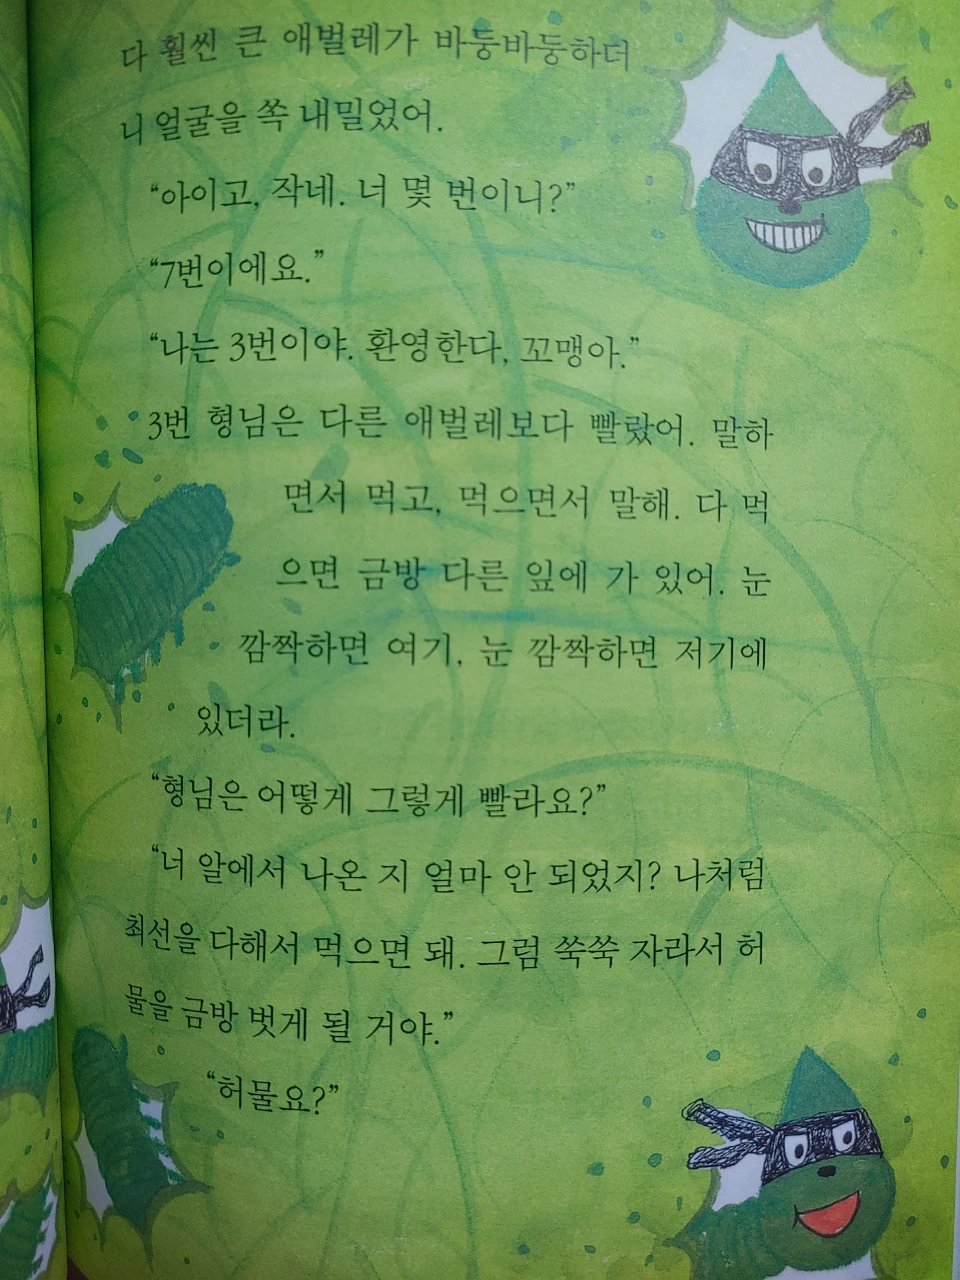 다 훨씬 큰 애벌레가 바둥바둥하더
니 얼굴을 쏙 내밀었어.
“아이고, 작네. 너 몇 번이니?”
“7번이에요.”
“나는 3번이야. 환영한다, 꼬맹아.”
3번 형님은 다른 애벌레보다 빨랐어. 말하
면서 먹고, 먹으면서 말해. 다 먹
으면 금방 다른 잎에 가 있어. 눈
깜짝하면 여기, 눈 깜짝하면 저기에
있더라.
“형님은 어떻게 그렇게 빨라요?”
“너 알에서 나온 지 얼마 안 되었지? 나처럼
최선을 다해서 먹으면 돼. 그럼 쑥쑥 자라서 허
물을 금방 벗게 될 거야.”
“허물요?”